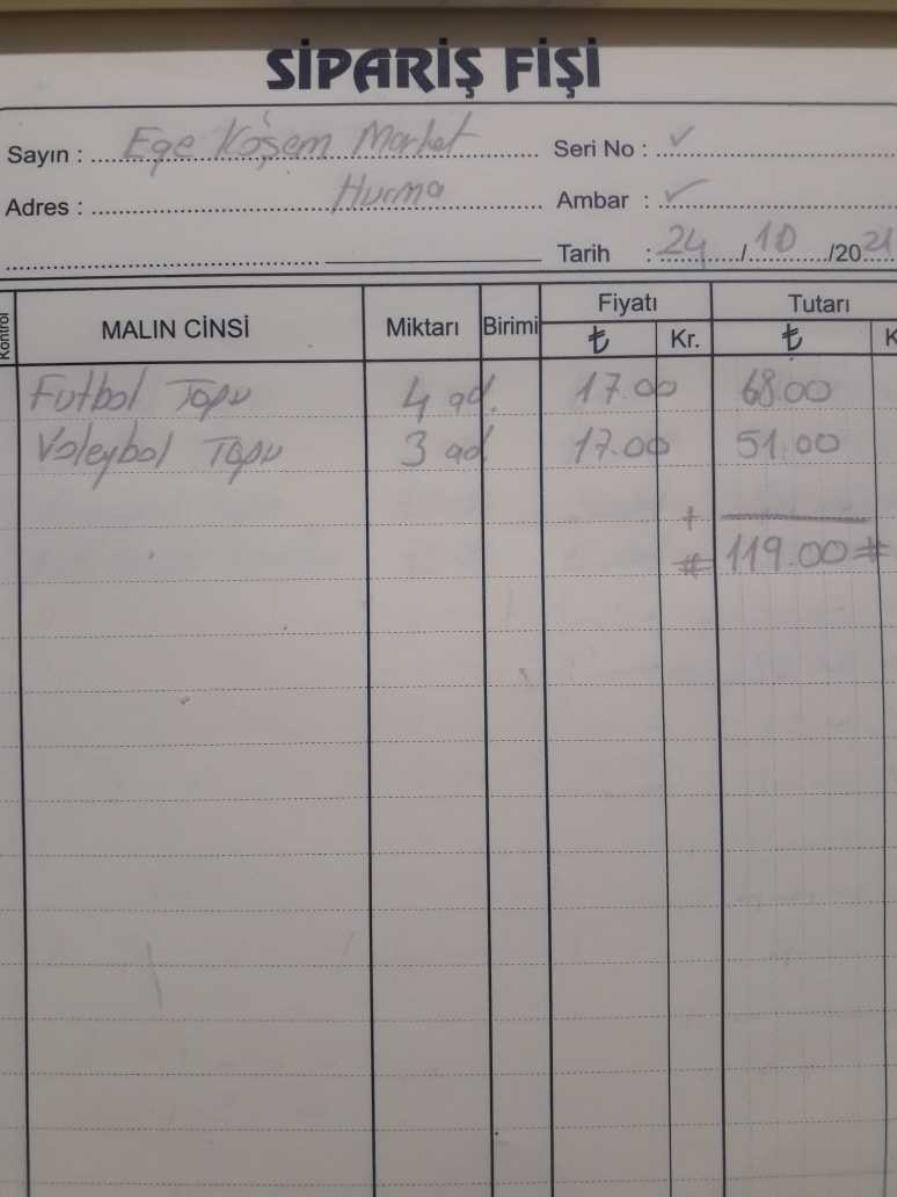 SİPARİŞ FİŞİ
Sayın : Ege Köşem Market Seri No : ✓
Adres : Hurma Ambar : ✓
Tarih : 24 / 10 /2021
Kontrol MALIN CİNSİ Miktarı Birimi Fiyatı ₺ Kr. Tutarı ₺ K
Futbol Topu 4 ad. 17.00 68.00
Voleybol Topu 3 ad 17.00 51.00
+
# 119.00 #